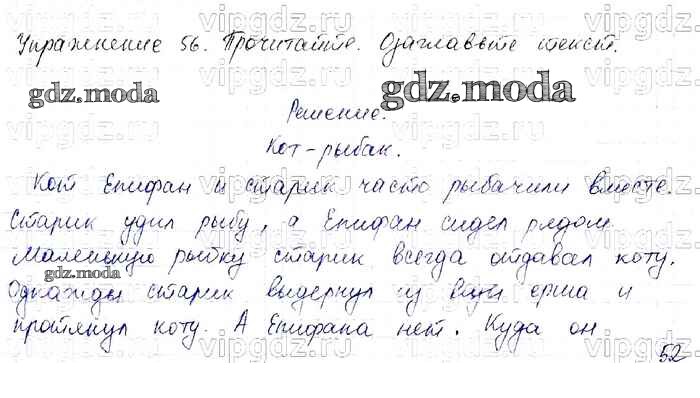 Упражнение 56. Прочитайте. Озаглавьте текст.
gdz.moda
gdz.moda
Решение.
Кот-рыбак.
Кот Епифан и старик часто рыбачили вместе.
Старик удил рыбу, а Епифан сидел рядом
Маленькую рыбку старик всегда отдавал коту.
gdz.moda
Однажды старик выдернул из воды ерша и
протянул коту. А Епифана нет. Куда он
52
vipgdz.ru